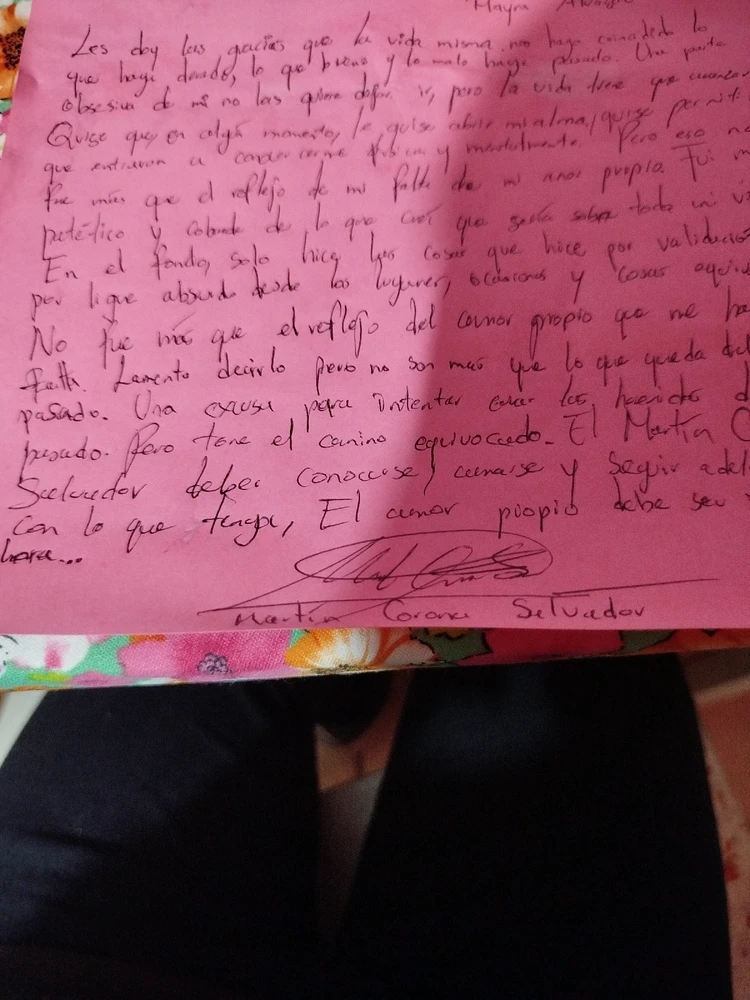 Mayra
Les doy las gracias que la vida misma no haya concedido lo
que haya durado, lo que bueno y lo malo haya pasado. Una parte
obsesiva de mi no las quiere dejar ir, pero la vida tiene que
Quise que, en algún momento, le quise abrir mi alma, quise
que entraran a conocerme física y mentalmente. Pero eso
fue más que el reflejo de mi falta de mi amor propio. Fui
patético y cobarde de lo que creí que sería sobre toda mi
En el fondo, solo hice las cosas que hice por
por ligue absurdo desde los lugares, ocasiones y cosas
No fue más que el reflejo del amor propio que me
falta. Lamento decirlo pero no son más que lo que queda del
pasado. Una excusa para intentar curar las heridas
pasado. Pero tome el camino equivocado. El Martín
Salvador debe conocerse, amarse y seguir
con lo que tenga, El amor propio debe ser
hora...
Martín Corona Salvador